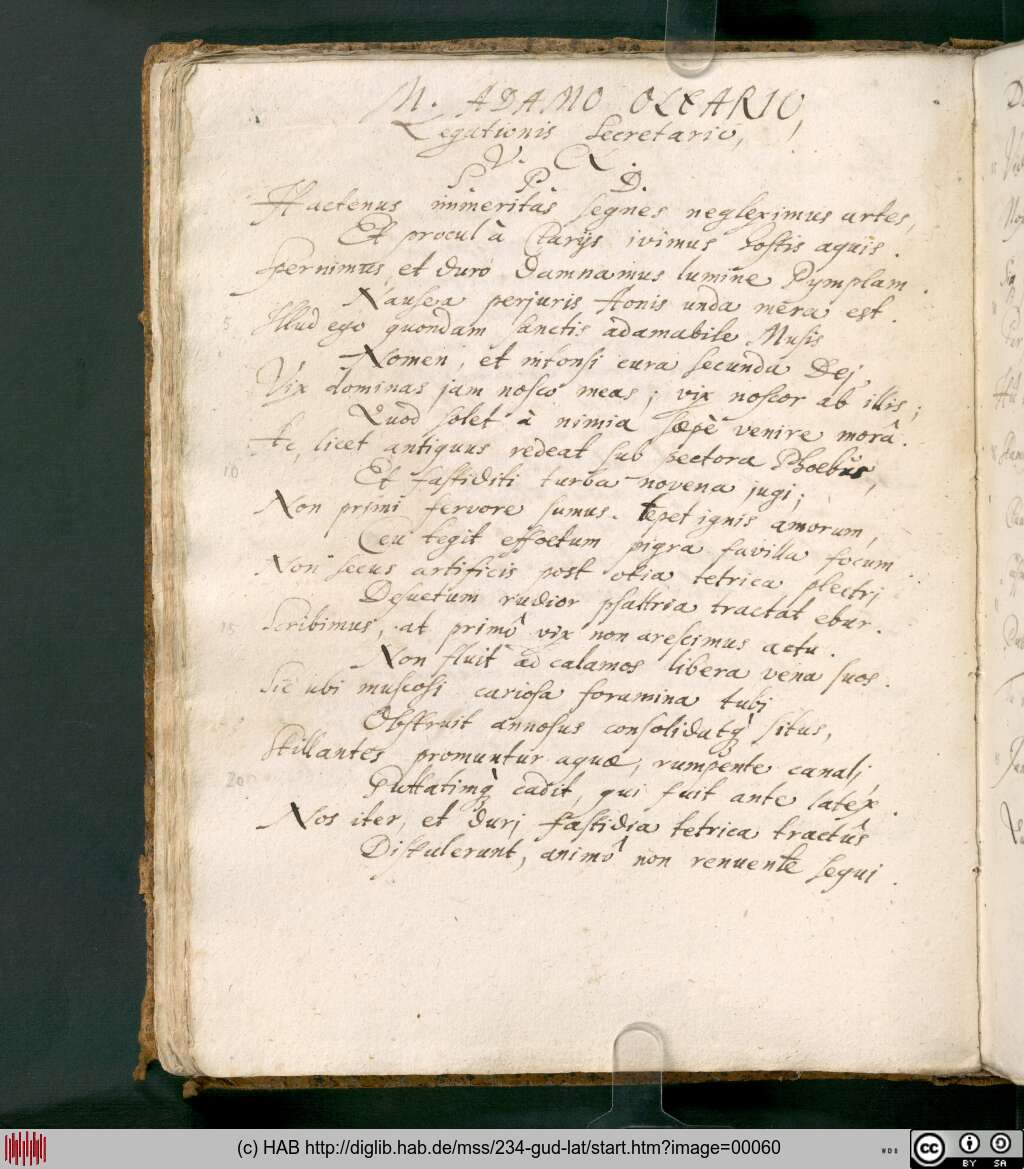 M. ADAMO OLEARIO,
Legationis Secretario,
V. Cl.
S. P. D.
Hactenus immeritâs segnes negleximus artes,
Et procul à Clarijs ivimus hostis aquis.
Spernimus, et durô damnamus lumine Pymplam.
Nausea perjuris Aonis unda mera est.
5 Illud ego quondam sanctis adamabile Musis
Nomen, et intonsi cura secunda Dej
Vix dominas jam nosco meas; vix noscor ab illis;
Quod solet à nimiâ sæpè venire morâ.
Ac, licet antiquus redeat sub pectora Phoebus,
10 Et fastiditi turba novena jugi;
Non primi fervore sumus. tepet ignis amorum,
Ceu tegit effoetum pigra favilla focum.
Non secus artificis post otia tetrica plectri
Desuetum rudior psaltria tractat ebur.
15 Scribimus, at primô vix non arescimus actu.
Non fluit ad calamos libera vena suos.
Sic ubi muscosi cariosa foramina tubj
Obstruit annosus consolidatq; situs,
Stillantes promuntur aquæ, rumpente canalj
20 Guttatimq; cadit, qui fuit ante latex.
Nos iter, et durj fastidia tetrica tractûs
Distulerunt, animô non renuente sequi.
(c) HAB http://diglib.hab.de/mss/234-gud-lat/start.htm?image=00060
WDB
cc BY SA